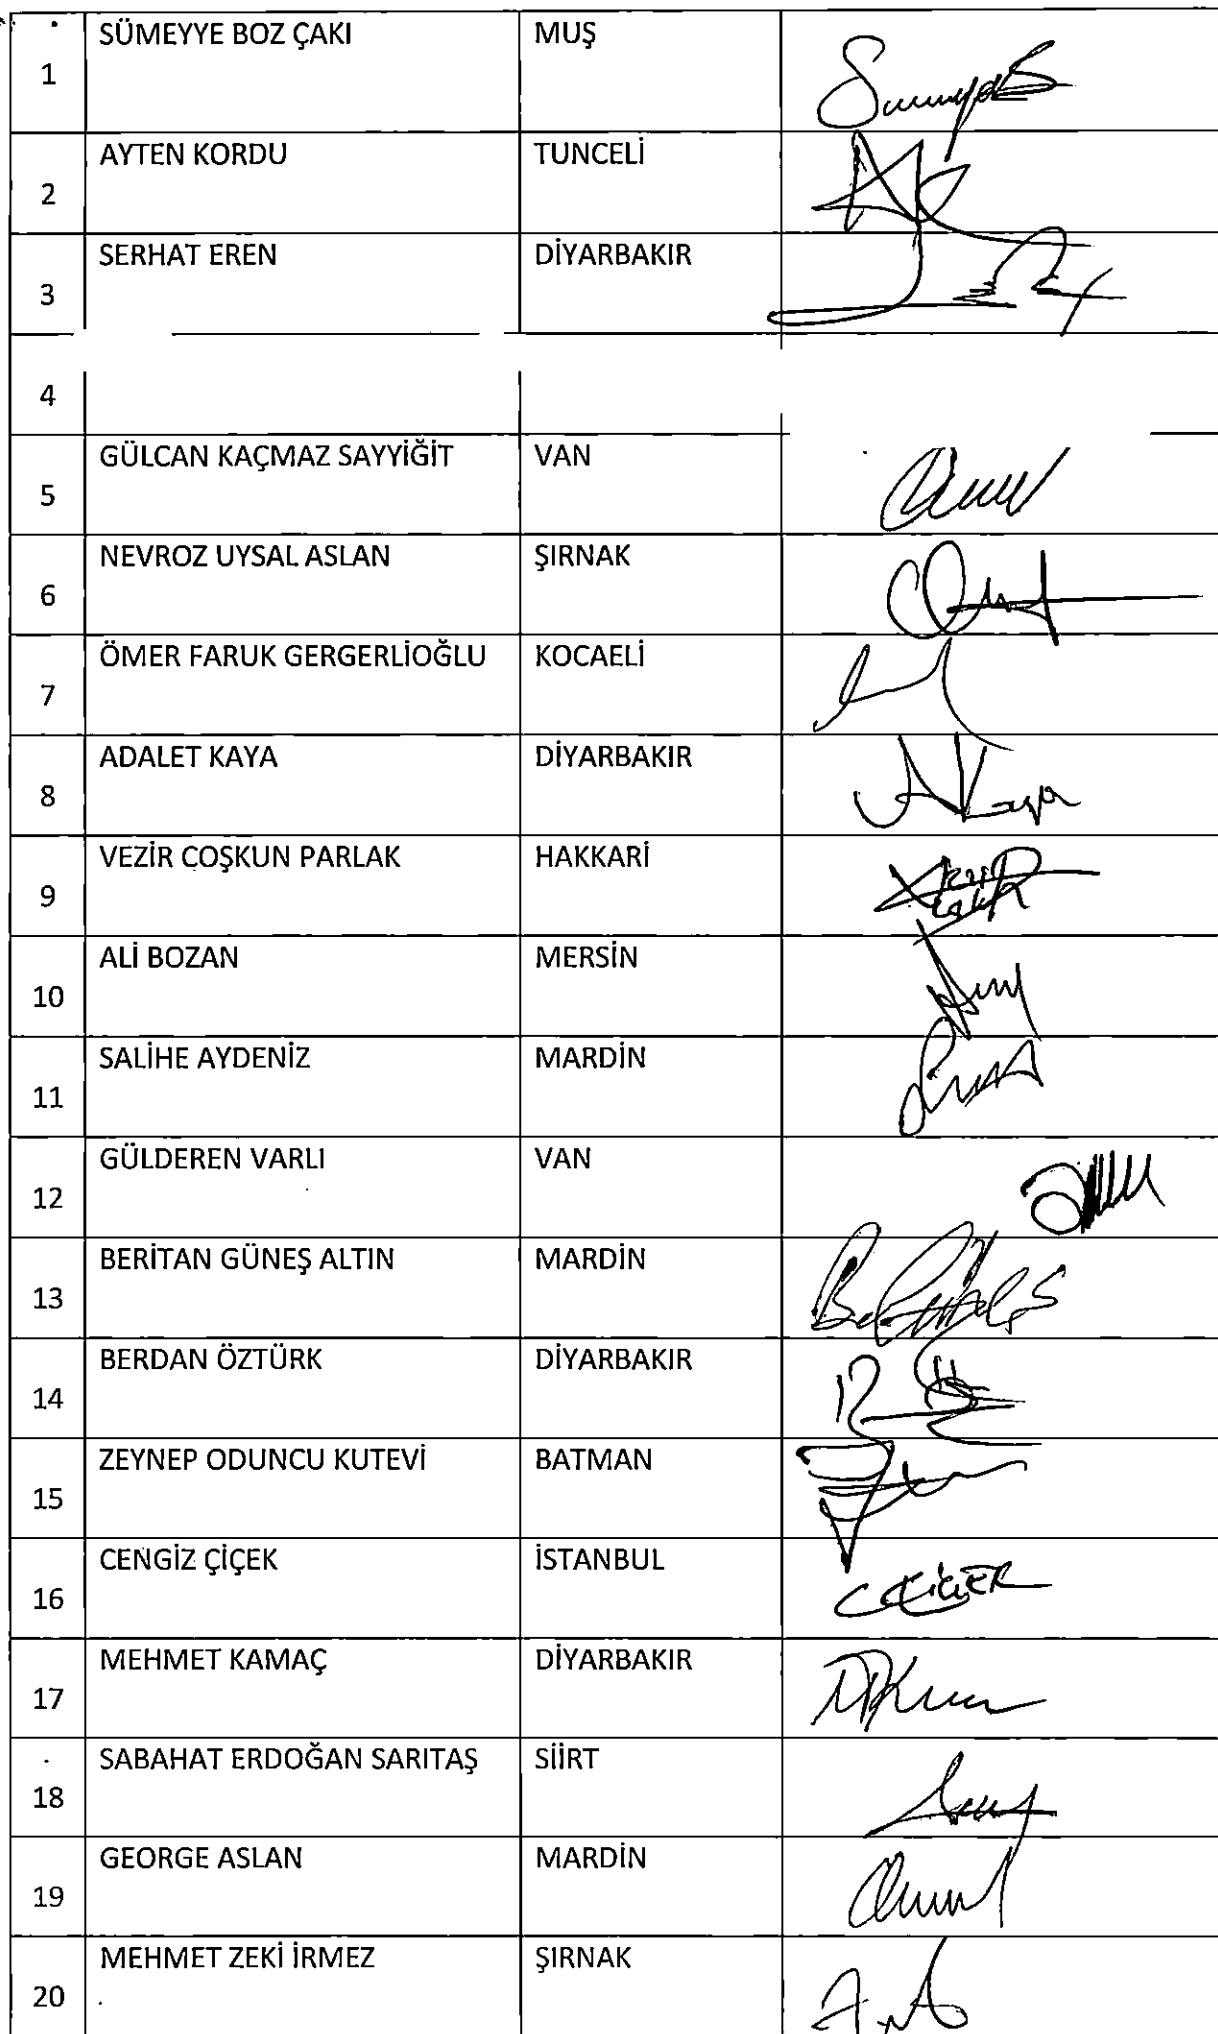 1 SÜMEYYE BOZ ÇAKI MUŞ
2 AYTEN KORDU TUNCELİ
3 SERHAT EREN DİYARBAKIR
4
5 GÜLCAN KAÇMAZ SAYYİĞİT VAN
6 NEVROZ UYSAL ASLAN ŞIRNAK
7 ÖMER FARUK GERGERLİOĞLU KOCAELİ
8 ADALET KAYA DİYARBAKIR AKaya
9 VEZİR COŞKUN PARLAK HAKKARİ
10 ALİ BOZAN MERSİN
11 SALİHE AYDENİZ MARDİN
12 GÜLDEREN VARLI VAN
13 BERİTAN GÜNEŞ ALTIN MARDİN
14 BERDAN ÖZTÜRK DİYARBAKIR
15 ZEYNEP ODUNCU KUTEVİ BATMAN
16 CENGİZ ÇİÇEK İSTANBUL C ÇİÇEK
17 MEHMET KAMAÇ DİYARBAKIR
18 SABAHAT ERDOĞAN SARITAŞ SİİRT
19 GEORGE ASLAN MARDİN
20 MEHMET ZEKİ İRMEZ ŞIRNAK